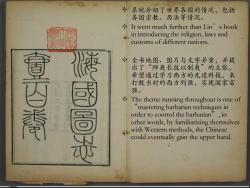 海國圖志
系統介紹了世界各國的情況，包括
各國宗教、曆法等情況。
It went much further than Lin's book
in introducing the religion, laws and
customs of different nations.
全書地圖、圖片與文字並重，並提
出了“師夷長技以制夷”的主張，
希望通過學習西方的先進科技，來
打敗當時的西方列強，實現國家富
強。
The theme running throughout is one
of "mastering barbarian techniques in
order to control the barbarian", in
other words, by familiarizing themselves
with Western methods, the Chinese
could eventually gain the upper hand.